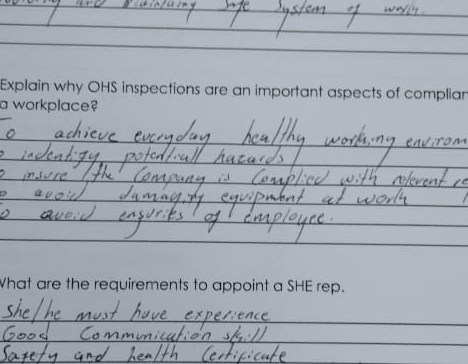 and Maintaing safe system of work.
Explain why OHS inspections are an important aspects of complian
a workplace?
To achieve everyday healthy working envirom
o indentify potentiall hazards
o insure the Company is Complied with relevent re
o avoid damaging equipment at work
To avoid enguriks of employee.
What are the requirements to appoint a SHE rep.
She/he must have experience
Good Communication skill
Safety and health Certificate